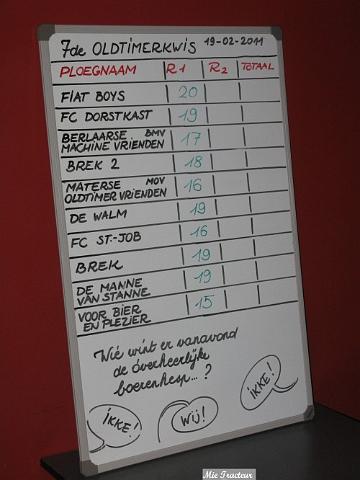 7de OLDTIMERKWIS 19-02-2011
PLOEGNAAM R1 R2 TOTAAL
FIAT BOYS 20
FC DORSTKAST 19
BERLAARSE BMV
MACHINE VRIENDEN 17
BREK 2 18
MATERSE MOV
OLDTIMER VRIENDEN 16
DE WALM 19
FC ST.-JOB 16
BREK 19
DE MANNE
VAN STANNE 19
VOOR BIER
EN PLEZIER 15
Wié wint er vanavond
de overheerlijke
boerenhesp...?
IKKE!
WIJ!
IKKE!
Mie Tracteur